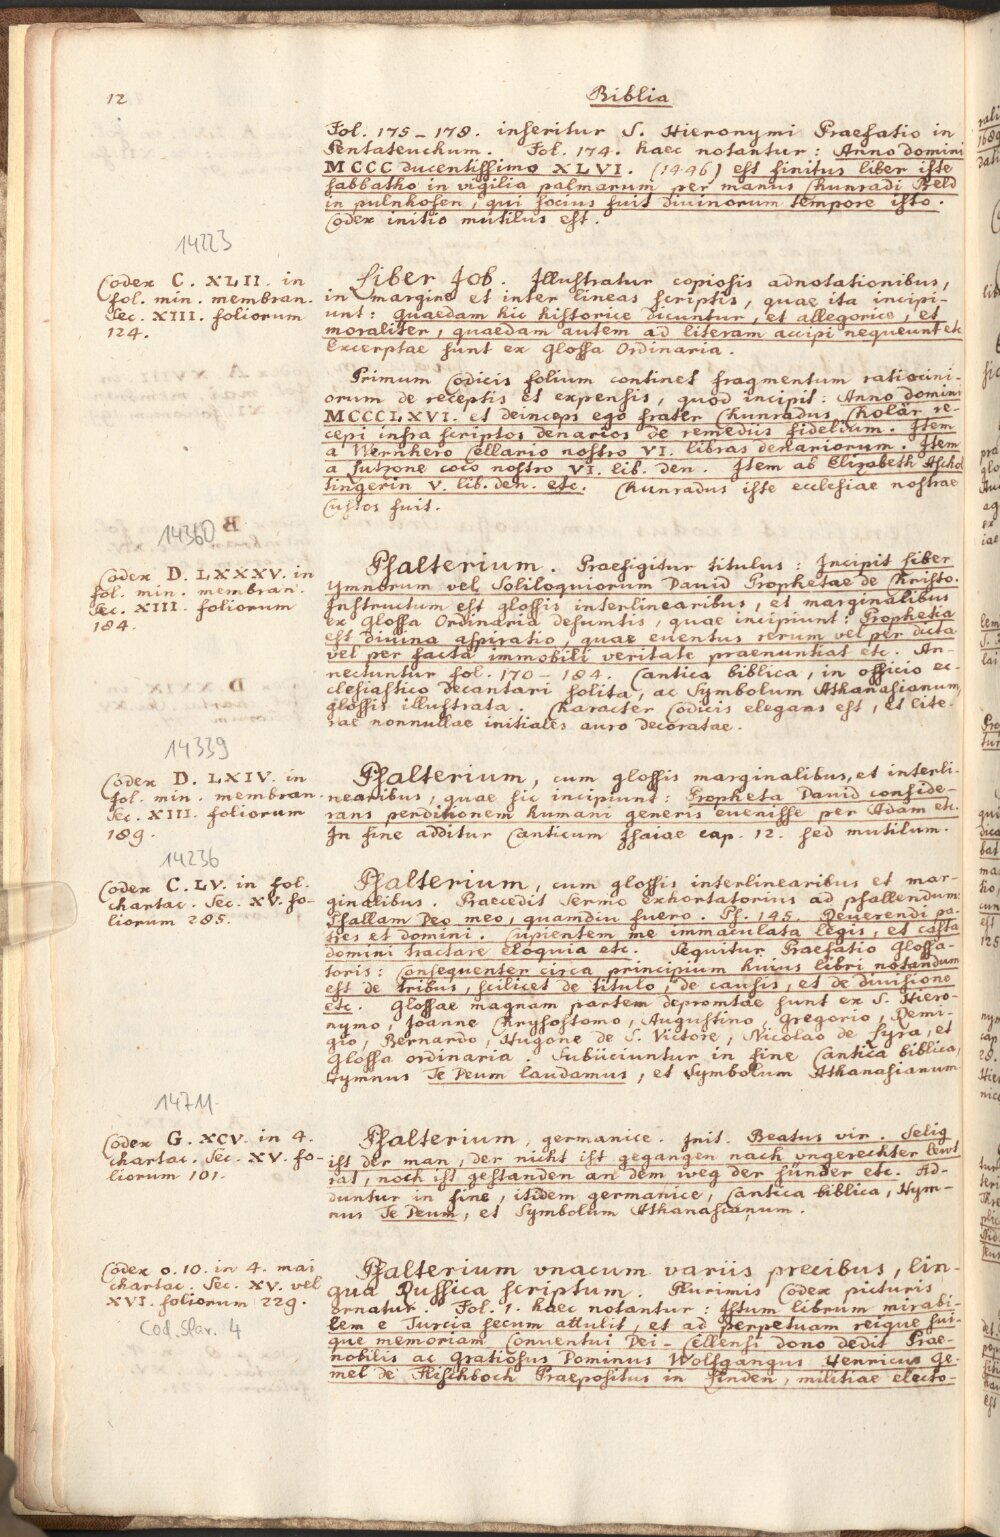 12
Biblia
Fol. 175 – 178. inseritur S. Hieronymi Praefatio in
Pentateuchum. Fol. 174. haec notantur: Anno domini
MCCC ducentissimo XLVI. (1446) est finitus liber iste
sabbatho in vigilia palmarum per manus Chunradi Peld
in pulnhofen, qui socius fuit divinorum tempore isto.
Codex initio mutilus est.
14223
Codex C. XLII. in
fol. min. membran.
Sec. XIII. foliorum
124.
Liber Job. Illustratur copiosis adnotationibus,
in margine et inter lineas scriptis, quae ita incipi-
unt: quaedam hic historice dicuntur, et allegorice, et
moraliter, quaedam autem ad literam accipi nequeunt etc
Excerptae sunt ex Glossa Ordinaria.
Primum Codicis folium continet fragmentum ratiocini-
orum de receptis et expensis, quod incipit: Anno domini
MCCCLXVI. et deinceps ego frater Chunradus Cholär re-
cepi infra scriptos denarios de remediis fidelium. Item
a Wernhero Cellario nostro VI. libras denariorum. Item
a Lutzone coco nostro VI. lib. den. Item ab Elizabeth Aschol
tingerin V. lib. den. etc. Chunradus iste ecclesiae nostrae
Custos fuit.
14360
Codex D. LXXXV. in
fol. min. membran.
Sec. XIII. foliorum
184.
Psalterium. Praefigitur titulus: Incipit Liber
ymnorum vel Soliloquiorum Dauid Prophetae de Christo.
Instructum est glossis interlinearibus, et marginalibus
ex Glossa Ordinaria desumtis, quae incipiunt: Prophetia
est divina aspiratio, quae euentus rerum vel per dicta
vel per facta immobili veritate praenuntiat etc. An-
nectuntur fol. 170 – 184. Cantica biblica, in officio ec-
clesiastico decantari solita, ac Symbolum Athanasianum,
glossis illustrata. Character Codicis elegans est, et lite-
rae nonnullae initiales auro decoratae.
14339
Codex D. LXIV. in
fol. min. membran.
Sec. XIII. foliorum
189.
Psalterium, cum glossis marginalibus, et interli-
nearibus, quae sic incipiunt: Propheta Dauid conside-
rans perditionem humani generis euenisse per Adam etc.
In fine additur Canticum Isaiae cap. 12. sed mutilum.
14236
Codex C. LV. in fol.
chartac. Sec. XV. fo-
liorum 285.
Psalterium, cum glossis interlinearibus et mar-
ginalibus. Praecedit Sermo exhortatorius ad psallendum:
Psallam Deo meo, quamdiu fuero. Ps. 145. Reuerendi pa-
tres et domini. Cupientem me immaculata legis, et casta
domini tractare eloquia etc. Sequitur Praefatio Glossa-
toris: Consequenter circa principium huius libri notandum
est de tribus, scilicet de titulo, de causis, et de diuisione
etc. Glossae magnam partem depromtae sunt ex S. Hiero-
nymo, Joanne Chrysostomo, Augustino, Gregorio, Remi-
gio, Bernardo, Hugone de S. Victore, Nicolao de Lyra, et
Glossa ordinaria. Subiiciuntur in fine Cantica biblica,
Hymnus Te Deum laudamus, et Symbolum Athanasianum
14711.
Codex G. XCV. in 4.
chartac. Sec. XV. fo-
liorum 101.
Psalterium, germanice. Init. Beatus vir. Selig
ist der man, der nicht ist gegangen nach vngerechter lewt
rat, noch ist gestanden an dem weg der sünder etc. Ad-
duntur in fine, itidem germanice, Cantica biblica, Hym-
nus Te Deum, et Symbolum Athanasianum.
Codex o. 10. in 4. mai
chartac. Sec. XV. vel
XVI. foliorum 229.
Cod. Slav. 4
Psalterium vnacum variis precibus, lin-
gua Russica scriptum. Plurimis Codex picturis
ornatur. Fol. 1. haec notantur: Istum librum mirabi-
lem e Turcia secum attulit, et ad perpetuam reique sui-
que memoriam Conuentui Dei-Cellensi dono dedit Prae-
nobilis ac Gratiosus Dominus Wolfgangus Henricus Ge-
mel de Flischboch Praepositus in Linden, militiae electo-